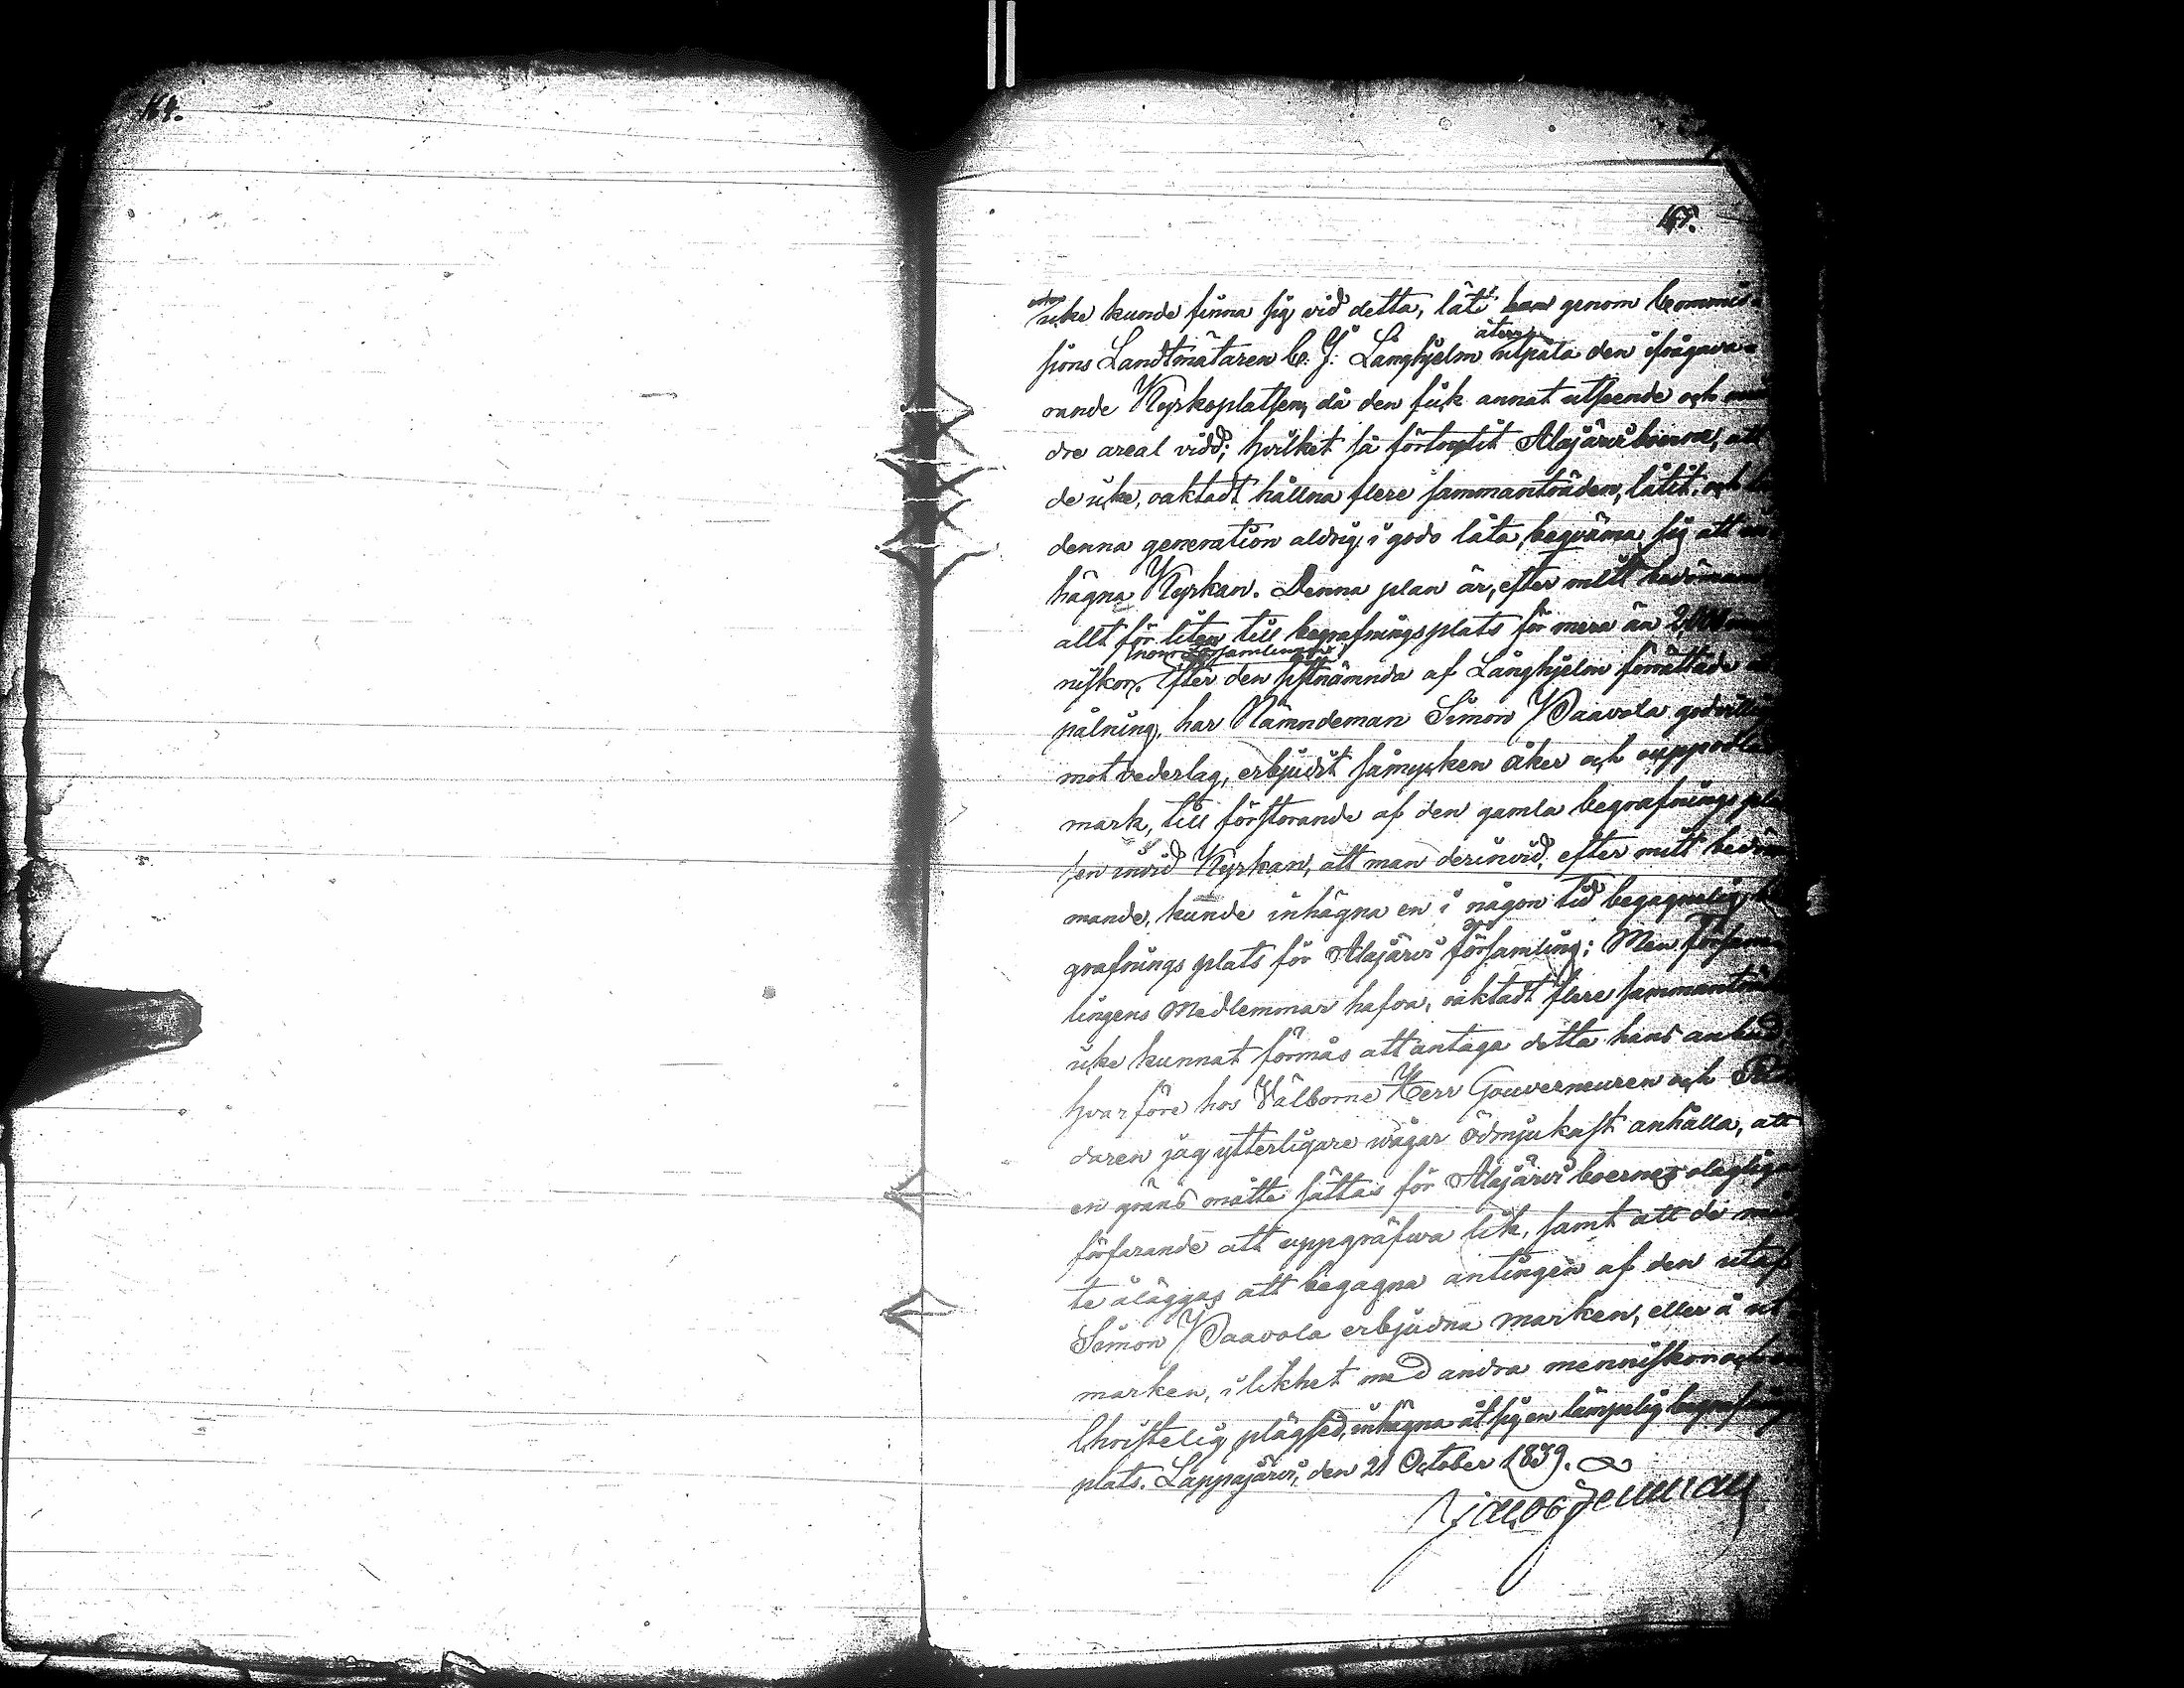 164.
165.
icke kunde finna sig vid detta, lät han genom Commis-
sions Landtmätaren C. J. Långhjelm åter utpåla den ifrågava-
rande Kyrkoplatsen, då den fick annat utseende och min
dre areal vidd; hvilket så förtörnat Alajärviboerne, att
de icke, oaktadt hållna flere sammanträden, låtit, och lär
denna generation aldrig, i godo låta, beqväma sig att in-
hägna Kyrkan. Denna plan är, efter mitt bedömande
allt för liten till begrafningsplats för mera än 2,000 men
niskor. Efter den sistnämnda af Långhjelm förrättade ut
pålning, har Nämndeman Simon Paavola godvilligt
mot vederlag, erbjudit såmycken åker och ouppodlad
mark, till förstorande af den gamla begrafnings plat
sen invid Kyrkan, att man derinvid, efter mitt bedöm
mande, kunde inhägna en i någon tid begagnelig be
grafnings plats för Alajärvi församling: Men Försam
lingens Medlemmar hafva, oaktadt flere sammanträden
icke kunnat förmås att antaga detta hans anbud,
hvarföre hos Välborne Herr Gouverneuren och Rid
daren jag ytterligare wågar ödmjukast anhålla, att
en gräns måtte sättas för Alajärvi boernes olagliga
förfarande att uppgräfva lik, samt att de måt
te åläggas att begagna antingen af den utaf
Simon Paavola erbjudna marken, eller å ut
marken, i likhet med andra menniskor och
Christelig plägsed, inhägna åt sig en lämpelig begrafnings
plats. Lappajärvi, den 21 October 1839.